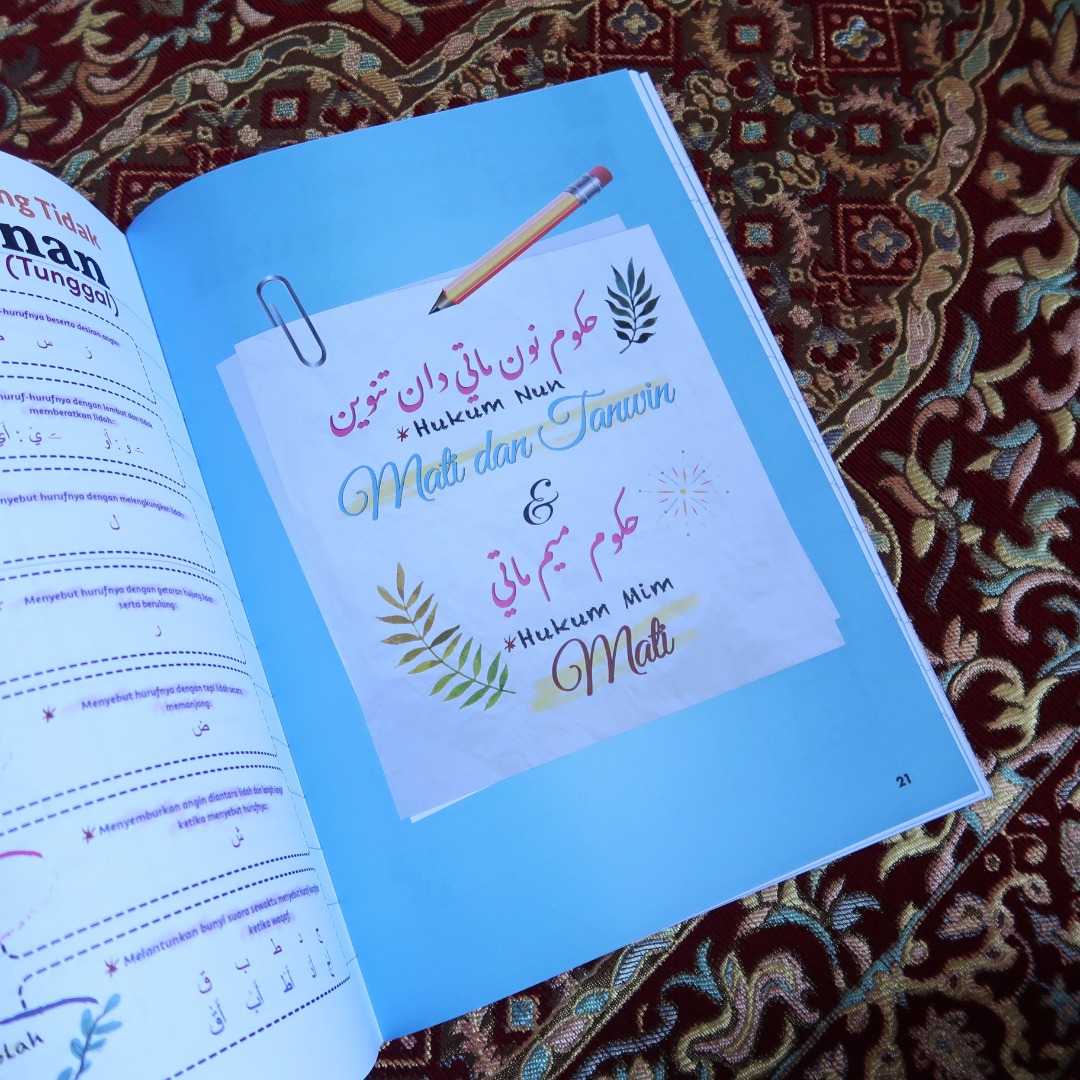 ng Tidak
nan
(Tunggal)
-hurufnya beserta desiran angin:
ز س ص
huruf-hurufnya dengan lembut dan tidak
memberatkan lidah:
menyebut hurufnya dengan melengkungkan lidah:
ل
Menyebut hurufnya dengan getaran hujung lidah
serta berulang:
ر
Menyebut hurufnya dengan tepi lidah secara
memanjang:
ض
Menyemburkan angin diantara lidah dan langit-langit
ketika menyebut hurufnya:
ش
Melantunkan bunyi suara sewaktu menyebut huruf
ketika waqaf:
ق ب ط د ج
أق أب أط
حكوم نون ماتي دان تنوين
*Hukum Nun
Mati dan Tanwin
&
حكوم ميم ماتي
*Hukum Mim
Mati
21